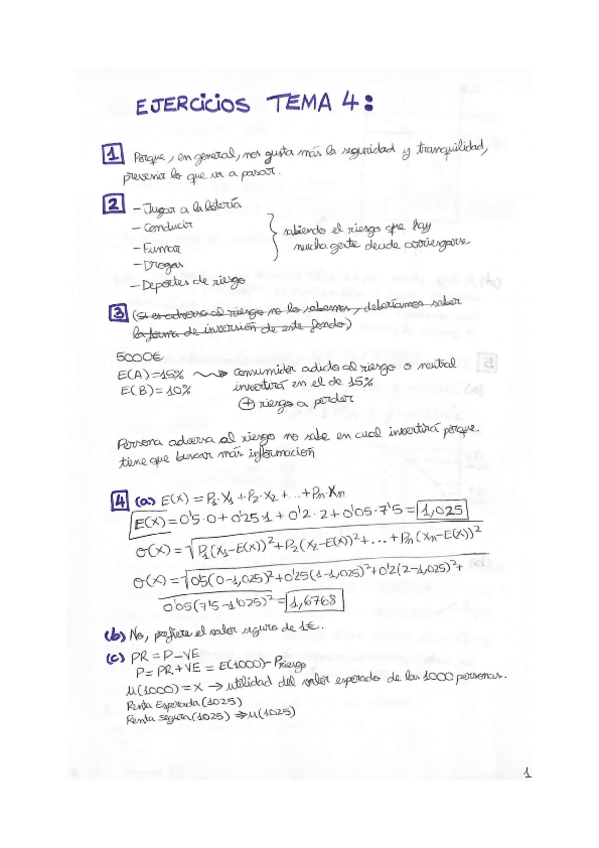 EJERCICIOS TEMA 4:
1 Porque, en general, nos gusta más la seguridad y tranquilidad,
prevenir lo que va a pasar.
2 - Jugar a la lotería
- Conducir
- Fumar
- Drogas
- Deportes de riesgo
sabiendo el riesgo que hay
mucha gente decide arriesgarse
3 (si es adversa al riesgo no lo sabemos, deberíamos saber
la forma de inversión de este fondo)
5000€
E(A)=15% → consumidor adido al riesgo o neutral
E(B)=10% invertirá en el de 15%
⊕ riesgo a perder
Persona adversa al riesgo no sabe en cual invertirá porque
tiene que buscar más información
4 (a) E(X) = P1·X1 + P2·X2 + ... + Pn·Xn
E(X) = 0'5·0 + 0'25·1 + 0'2·2 + 0'05·7'5 = 1,025
σ(X) = √P1(X1-E(X))² + P2(X2-E(X))² + ... + Pn(Xn-E(X))²
σ(X) = √05(0-1,025)² + 0'25(1-1,025)² + 0'2(2-1,025)² +
0'05(7'5-1'025)² = 1,6768
(b) No, prefiere el valor seguro de 1€.
(c) PR = P-VE
P = PR + VE = E(1000) - Priesgo
μ(1000) = X → utilidad del valor esperado de las 1000 personas.
Renta Esperada (1025)
Renta segura (1025) ⇒ μ(1025)
1